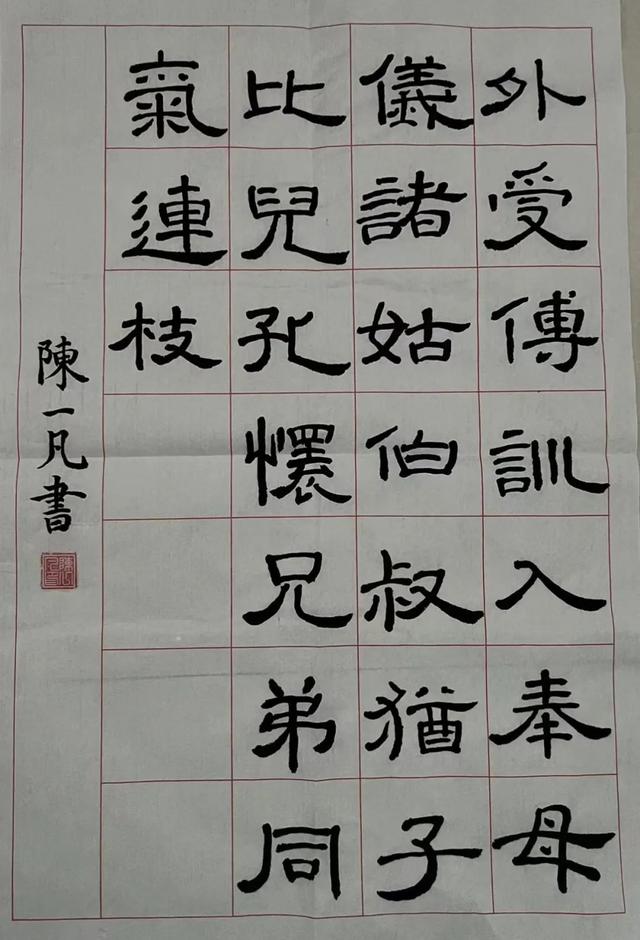 外受傅訓入奉母
儀諸姑伯叔猶子
比兒孔懷兄弟同
氣連枝
陳一凡書